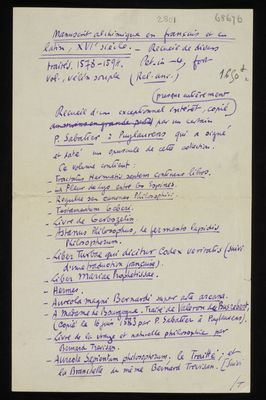 2801 68676
Manuscrit alchimique en français et en
latin, XVIe siècle. – Recueil de divers
traités, 1578-1598. Pet. in-4, fort
vol., vélin souple (Rel. anc.) 1650
(presque entièrement
Recueil d'un exceptionnel intérêt, copié)
par un certain
P. Sabatier à Puylaurens qui a signé
et daté un opuscule de cette collection.
Ce volume contient :
– Tractatus Hermetis septem continens libros.
– La Fleur de lys entre les espines.
– Regulae seu canones Philosophici
– Testamentum Geberi.
– Livre de
– Astanus Philosophus, de fermento lapidis
Philosophorum.
– Liber Turbae qui dicitur Codex veritatis (suivi
d'une traduction française).
– Liber Mariae Prophetissae.
– Hermes.
– Aureola magni Bernardi super arte arcana.
– A Madame de Bourgogne. Traité de
(Copié le 16 juin 1583 par P. Sabatier à Puylaurens).
– Livre de la vraye et naturelle philosophie par
Bernard Trevisan.
– Aureole Sapientum philosophorum, le Traitté, et
la du même Bernard Trevisan. (Suivi